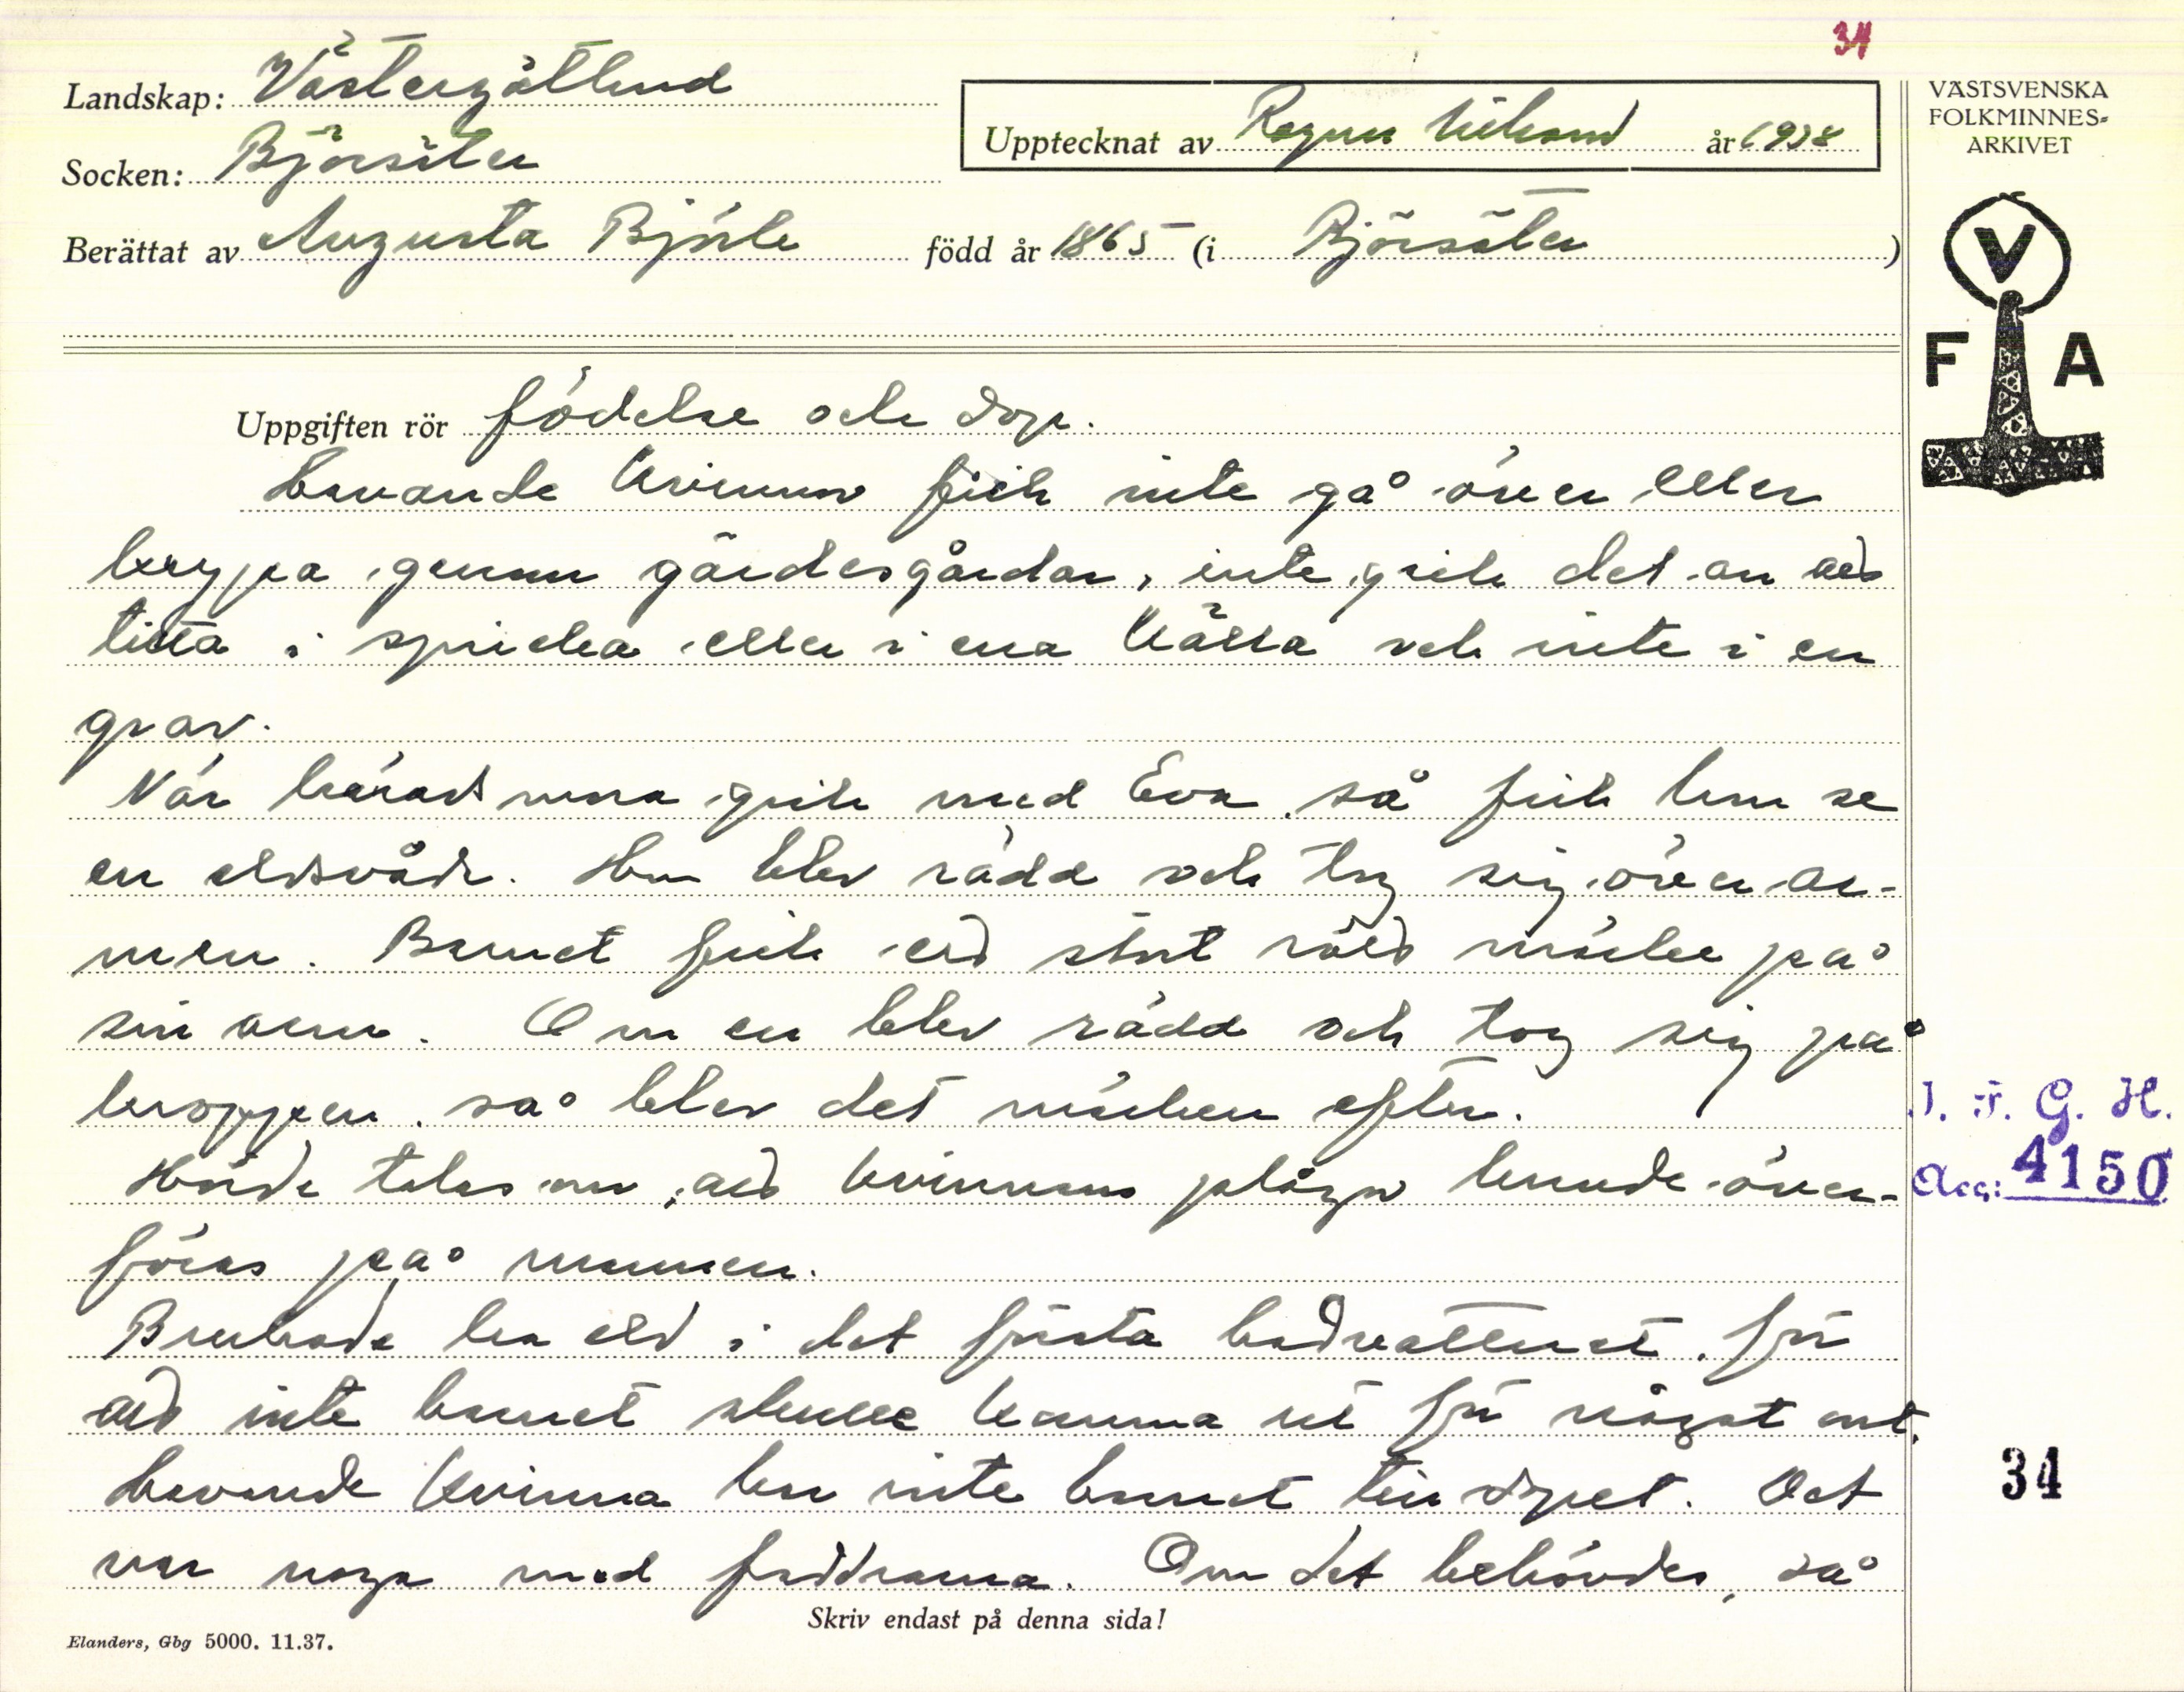 34
Landskap: Västergötland
Socken: Björsäter
Upptecknat av Ragnar Nilsson år 1938
Berättat av Augusta Björk född år 1865 (i Björsäter)
VÄSTSVENSKA
FOLKMINNES-
ARKIVET
V
F A
Uppgiften rör födelse och dop.
Havande kvinnor fick inte gå över eller
krypa genom gärdesgårdar, inte gick det an att
titta i spricka eller i en källa och inte i en
grav.
När mora gick med Eva, så fick hon se
en eldsvåda. Hon blev rädd och tog sig över ar-
men. Barnet fick ett stort rött märke på
sin arm. Om en blev rädd och tog sig på
kroppen, så blev det märken efter.
Hörde talas om, att kvinnans plågor kunde över-
föras på mannen.
Brukade ha eld i det första badvattnet, för
att inte barnet skulle komma ut för något ont.
Havande kvinna bar inte barnet till dopet. Det
var noga med faddrarna. Om det behövdes, så
I. F. G. H.
Acc: 4150
34
Skriv endast på denna sida!
Elanders, Gbg 5000. 11.37.